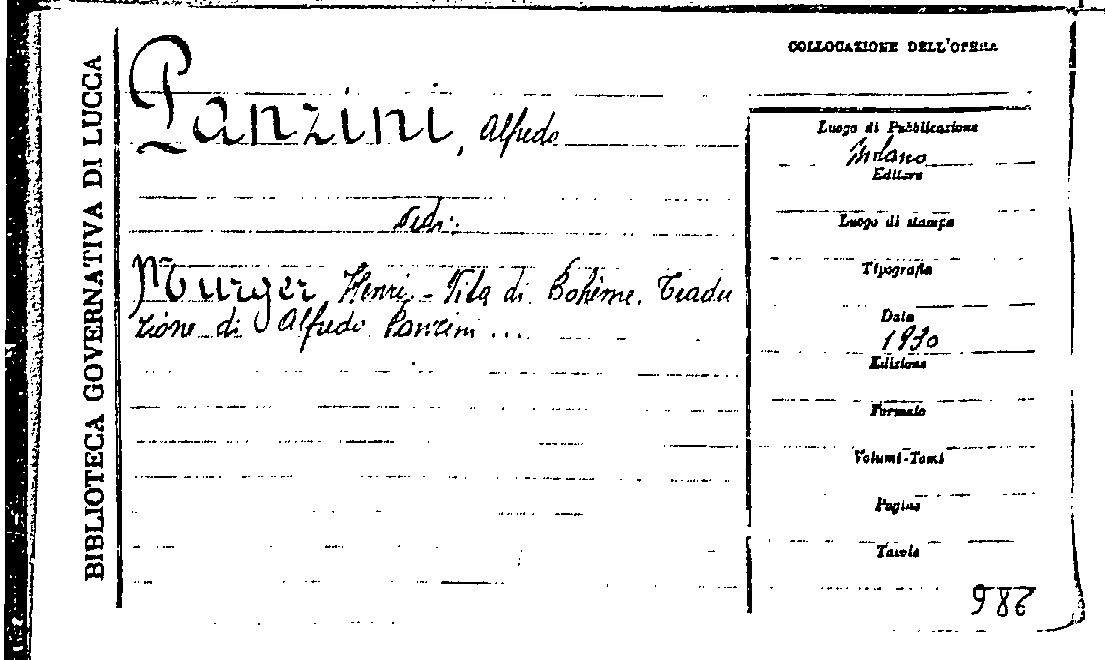 BIBLIOTECA GOVERNATIVA DI LUCCA
COLLOCAZIONE DELL'OPERA
Panzini, Alfredo
Vedi:
Murger, Henri - Vita di Bohème. Tradu
zione di Alfredo Panzini ...
Luogo di Pubblicazione
Milano
Editore
Luogo di stampa
Tipografia
Data
1930
Edizione
Formato
Volumi-Tomi
Pagine
Tavole
286